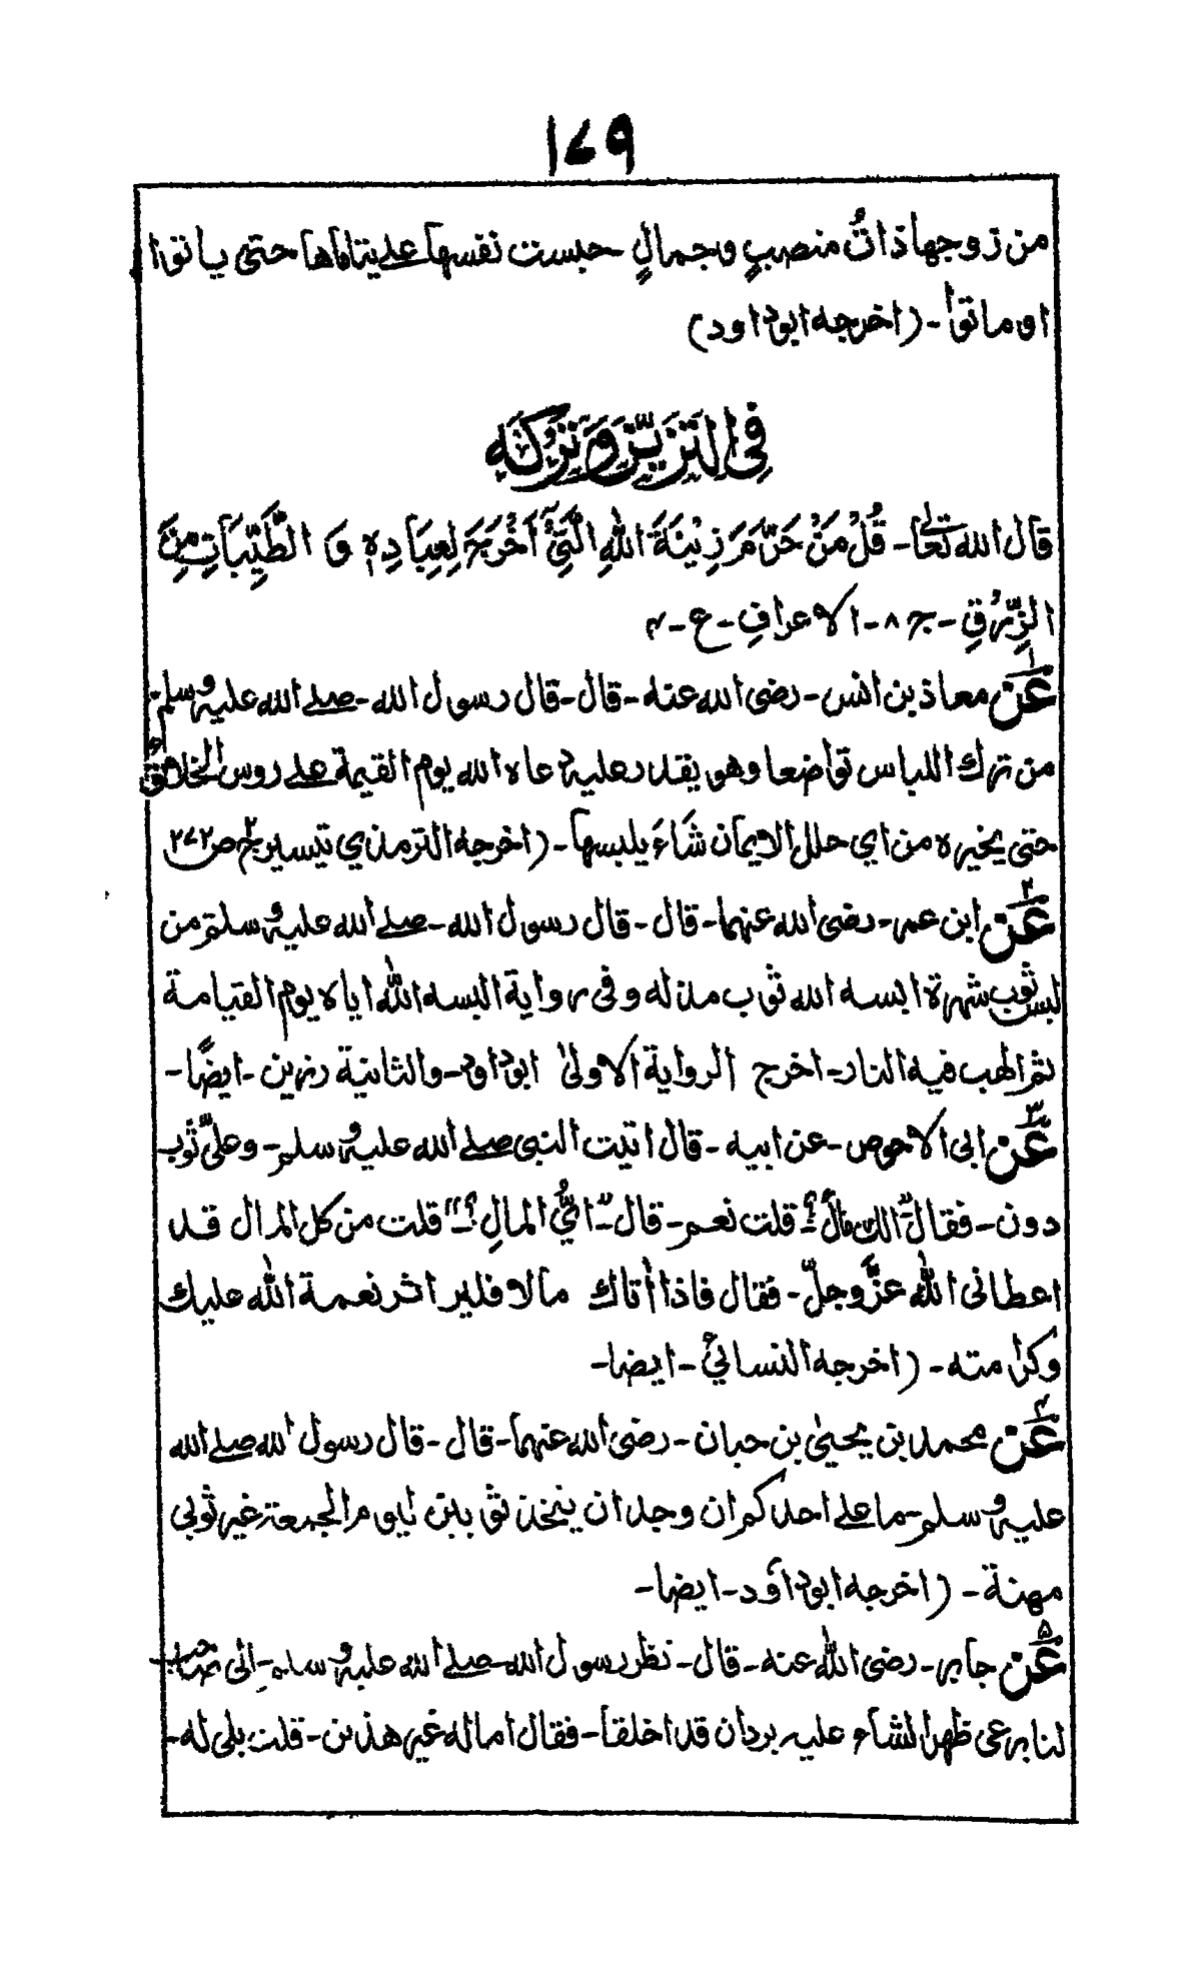 ١٧٩
من زوجها ذاتُ منصبٍ وجمالٍ - حبست نفسها علے يتاماها حتى يانوا
او ماتوا - (اخرجه ابوداود)
فِى التَّزَيُّنِ وَتَرْكِهِ
قال الله تعالى - قُلْ مَنْ حَرَّمَ زِيْنَةَ اللهِ الَّتِيْٓ اَخْرَجَ لِعِبَادِهٖ وَ الطَّيِّبَاتِ مِنَ
الرِّزْقِ - ج ٨ - الاعرافِ - ع - ٤
١ عن معاذ بن انس - رضى الله عنه - قال - قال رسول الله - صلے الله عليه وسلم
من ترك اللباس تواضعا وهو يقدر عليه دعاه الله يوم القيمة علے روس الخلائق
حتى يخيره من اي حلل الايمان شَاءَ يلبسها - (اخرجه الترمذي تيسير ج ٢ ص ٢٧٢
٢ عن ابن عمر - رضى الله عنهما - قال - قال رسول الله - صلے الله عليه وسلم من
لبس ثوب شهرة البسه الله ثوب مذله وفى رواية البسه اللهُ اياه يوم القيامة
ثم الهب فيه النار - اخرج الرواية الاولىٰ ابوداود - والثانية رزين - ايضًا -
٣ عن ابى الاحوص - عن ابيه - قال اتيت النبى صلے الله عليه وسلم - وعلىَّ ثوب
دون - فقال "الك مالٌ؟" قلت نعم - قال - "اىُّ المالِ؟" - قلت من كل المال قد
اعطانى اللهُ عزَّ وجلّ - فقال فاذا اٰتاك مالا فلير اثر نعمة الله عليك
وكرامته - (اخرجه النسائيُ - ايضا -
٤ عن محمد بن يحيىٰ بن حبان - رضى الله عنهما - قال - قال رسول الله صلے الله
عليه وسلم - ما علے احدكم ان وجد ان يتخذ ثوبين ليوم الجمعة غير ثوبى
مهنة - (اخرجه ابوداؤد - ايضا -
٥ عن جابر - رضى الله عنه - قال - نظر رسول الله - صلے الله عليه وسلم - الى صاحب
لنا يرعى ظهرا لنا وعليه بردان قد اخلقا - فقال اما له غير هذين - قلت بلى له -